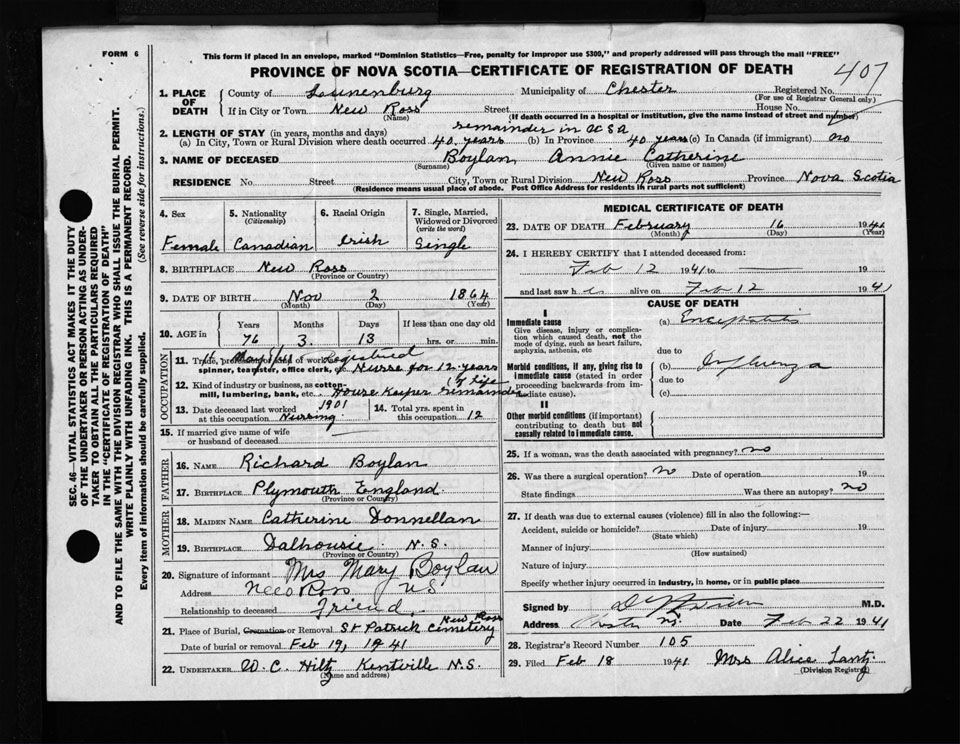 FORM 6
This form if placed in an envelope, marked "Dominion Statistics—Free, penalty for improper use $300," and properly addressed will pass through the mail "FREE"
PROVINCE OF NOVA SCOTIA—CERTIFICATE OF REGISTRATION OF DEATH
407
1. PLACE OF DEATH
County of Lunenburg Municipality of Chester Registered No.
(For use of Registrar General only)
If in City or Town New Ross Street House No.
(Name) (If death occurred in a hospital or institution, give the name instead of street and number)
remainder in USA
2. LENGTH OF STAY (in years, months and days)
(a) In City, Town or Rural Division where death occurred 40 years (b) In Province 40 years (c) In Canada (if immigrant) no
3. NAME OF DECEASED Boylan Annie Catherine
(Surname) (Given name or names)
RESIDENCE No. Street City, Town or Rural Division New Ross Province Nova Scotia
(Residence means usual place of abode. Post Office Address for residents in rural parts not sufficient)
4. Sex
Female
5. Nationality
(Citizenship)
Canadian
6. Racial Origin
Irish
7. Single, Married, Widowed or Divorced
(write the word)
Single
8. BIRTHPLACE New Ross
(Province or Country)
9. DATE OF BIRTH Nov 2 1864
(Month) (Day) (Year)
10. AGE in
Years Months Days If less than one day old
76 3 13 hrs. or min.
OCCUPATION
11. Trade, profession or kind of work Registered
spinner, teamster, office clerk, etc. Nurse for 12 years
12. Kind of industry or business, as cotton-mill, lumbering, bank, etc. House Keeper remainder of life
13. Date deceased last worked at this occupation 1901 Nursing
14. Total yrs. spent in this occupation 12
15. If married give name of wife or husband of deceased
FATHER
16. NAME Richard Boylan
17. BIRTHPLACE Plymouth England
(Province or Country)
MOTHER
18. MAIDEN NAME Catherine Donnellan
19. BIRTHPLACE Dalhousie N.S.
(Province or Country)
20. Signature of informant Mrs Mary Boylan
Address New Ross NS
Relationship to deceased Friend
21. Place of Burial, Cremation or Removal St Patrick Cemetery New Ross
Date of burial or removal Feb 19, 1941
22. UNDERTAKER W. C. Hiltz Kentville N.S.
(Name and address)
MEDICAL CERTIFICATE OF DEATH
23. DATE OF DEATH February 16 1941
(Month) (Day) (Year)
24. I HEREBY CERTIFY that I attended deceased from:
Feb 12 1941 to 19
and last saw h alive on Feb 12 1941
CAUSE OF DEATH
I
Immediate cause
Give disease, injury or complication which caused death, not the mode of dying, such as heart failure, asphyxia, asthenia, etc
(a) Encephalitis
due to
Morbid conditions, if any, giving rise to immediate cause (stated in order proceeding backwards from immediate cause).
(b) Influenza
due to
(c)
II
Other morbid conditions (if important) contributing to death but not causally related to immediate cause.
25. If a woman, was the death associated with pregnancy? no
26. Was there a surgical operation? no Date of operation 19
State findings Was there an autopsy? no
27. If death was due to external causes (violence) fill in also the following:—
Accident, suicide or homicide? Date of injury 19
(State which)
Manner of injury
(How sustained)
Nature of injury
Specify whether injury occurred in industry, in home, or in public place
Signed by M.D.
Address Chester NS Date Feb 22 1941
28. Registrar's Record Number 105
29. Filed Feb 18 1941 Mrs Alice Lantz
(Division Registrar)
SEC. 46—VITAL STATISTICS ACT MAKES IT THE DUTY
OF THE UNDERTAKER OR PERSON ACTING AS UNDERTAKER TO OBTAIN ALL THE PARTICULARS REQUIRED
IN THE "CERTIFICATE OF REGISTRATION OF DEATH"
AND TO FILE THE SAME WITH THE DIVISION REGISTRAR WHO SHALL ISSUE THE BURIAL PERMIT.
WRITE PLAINLY WITH UNFADING INK. THIS IS A PERMANENT RECORD.
Every item of information should be carefully supplied. (See reverse side for instructions.)